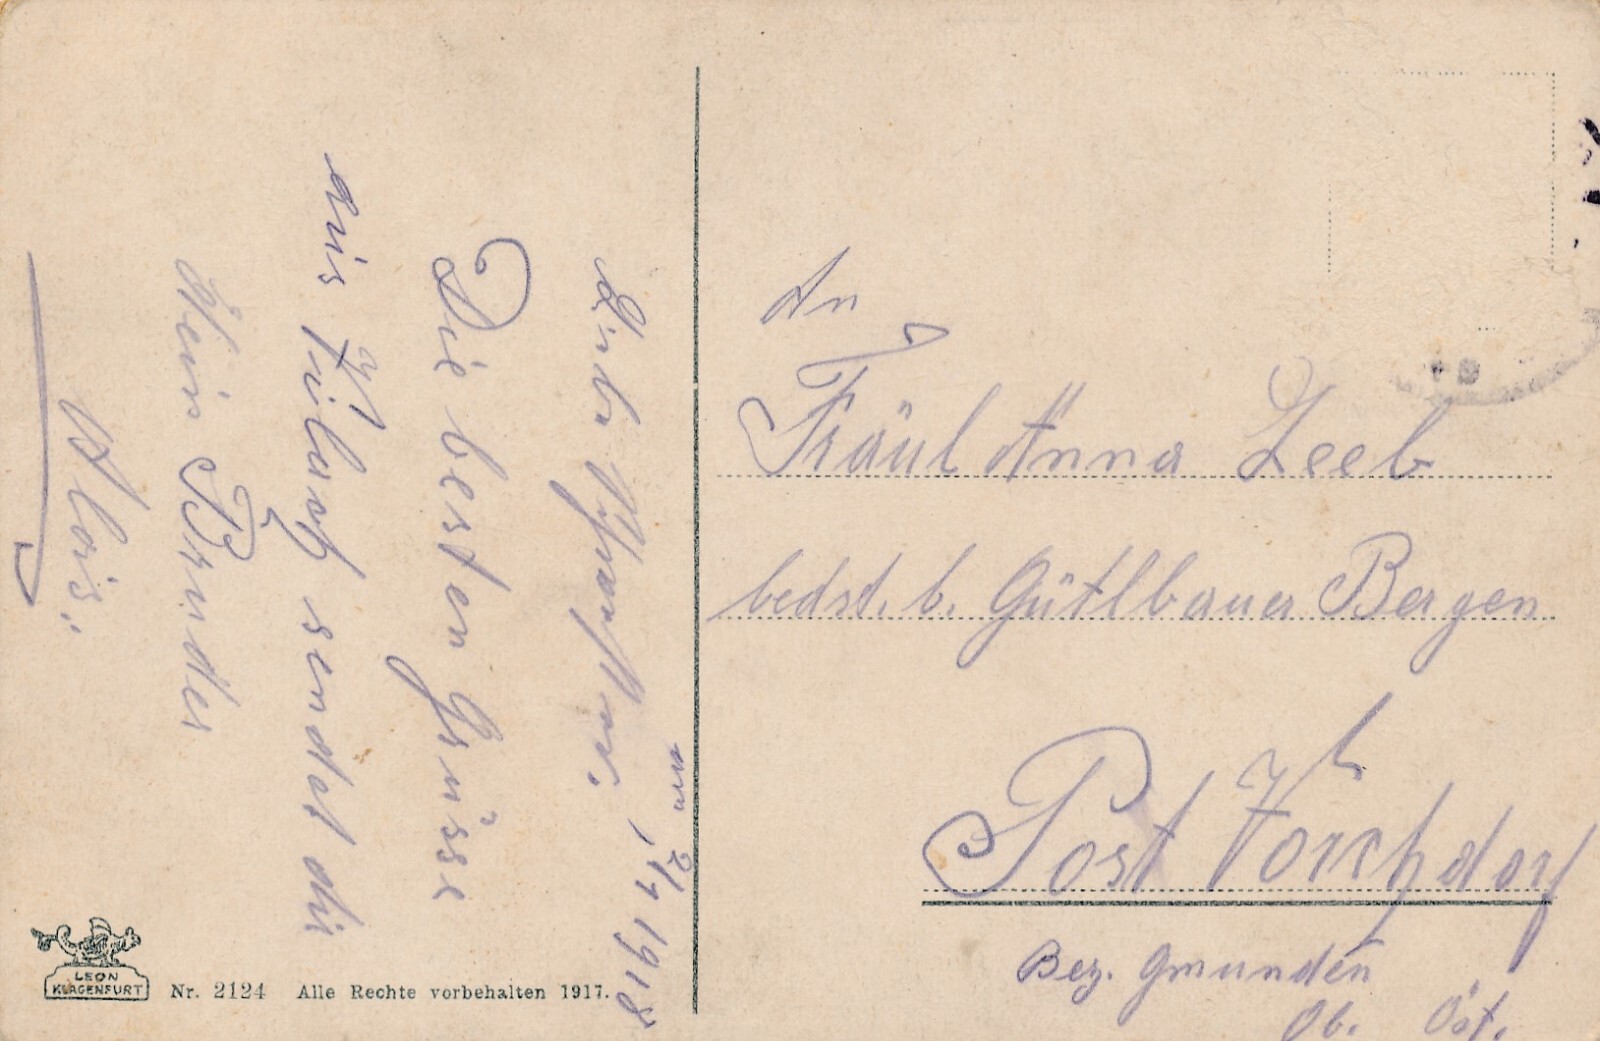 am, 2/1 1918
Liebe Schwester.
Die besten Grüsse
aus Filach sendet dir
Dein Bruder
Alois.
An
Fräul Anna Leeb
bedst. b. Gütlbauer Bergen
Post Vorchdorf
Bez. Gmunden
Ob. Öst.
LEON
KLAGENFURT
Nr. 2124 Alle Rechte vorbehalten 1917.